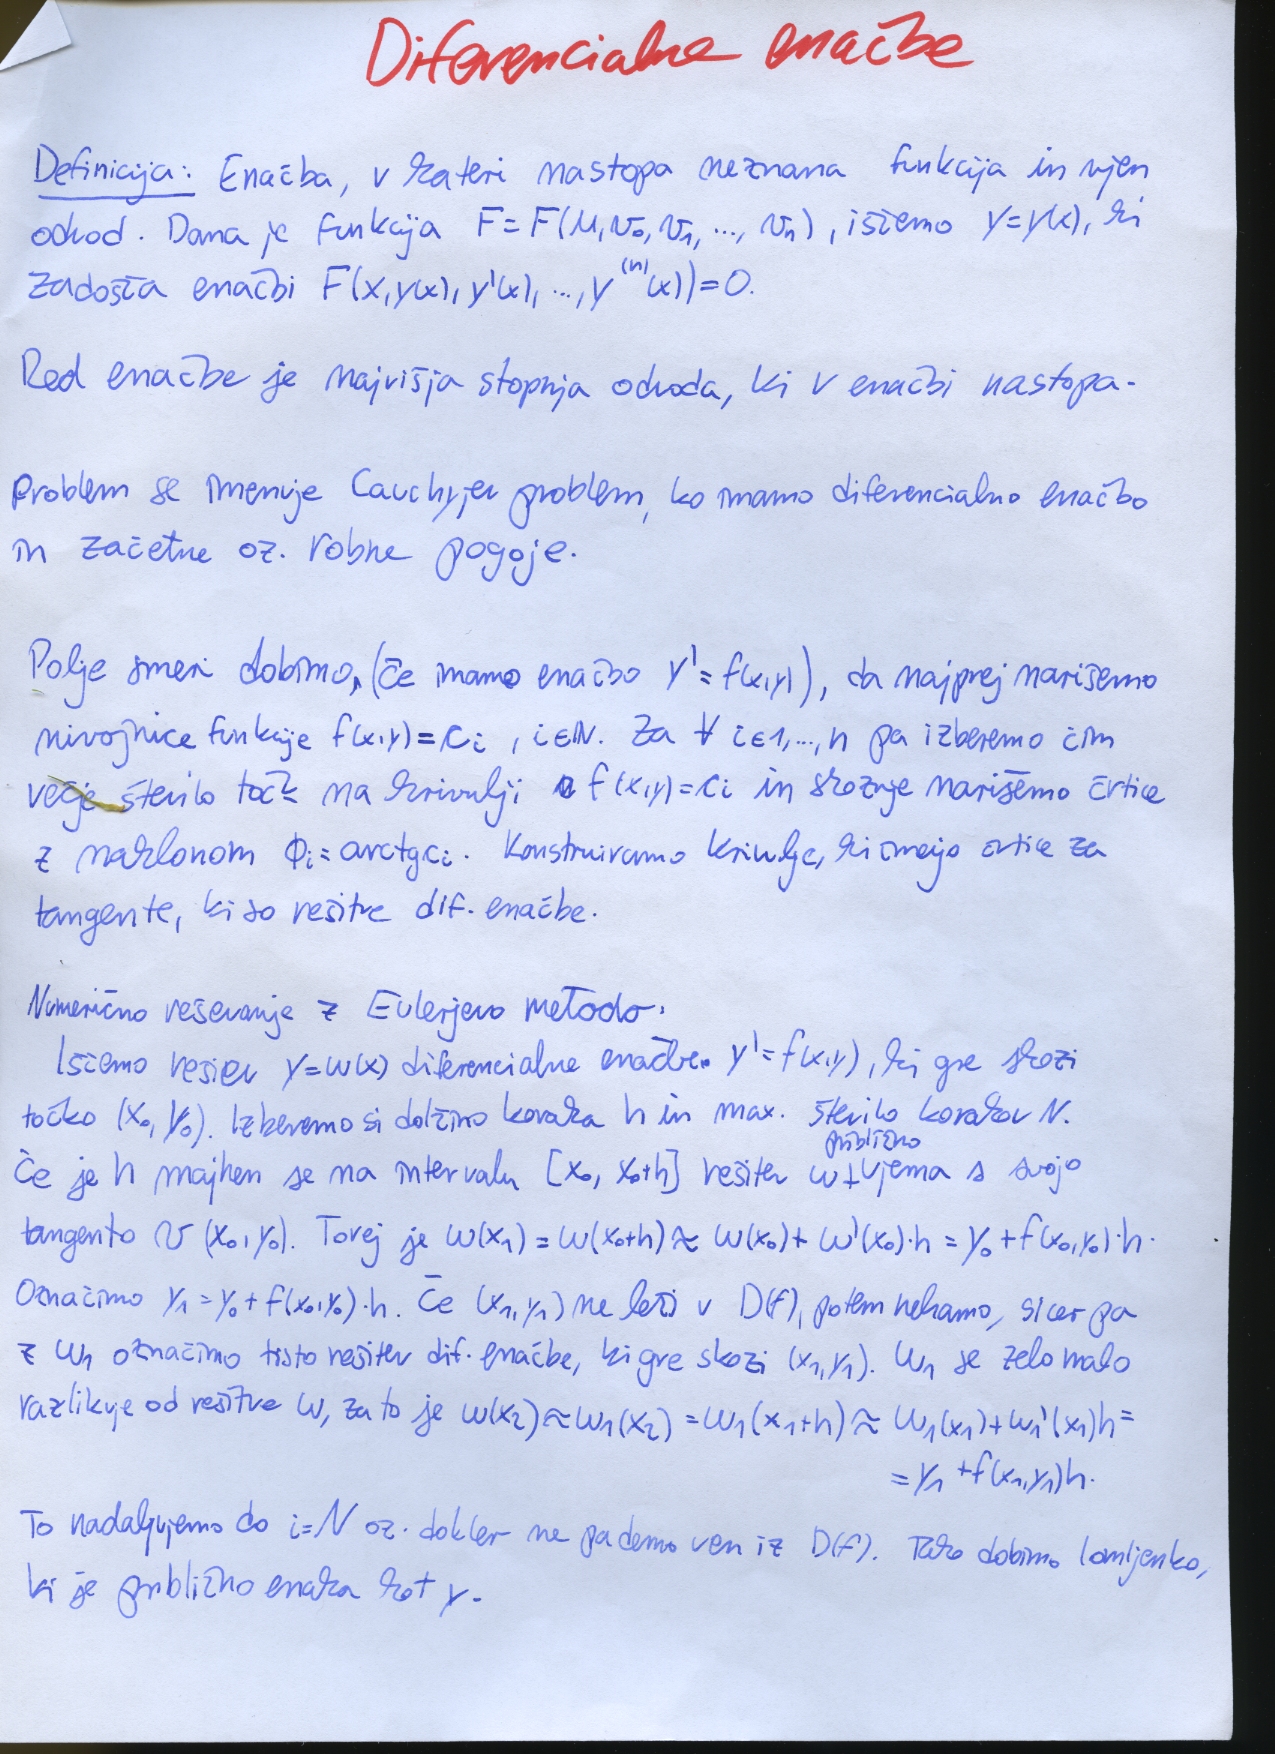 Diferencialne enačbe
Definicija: Enačba, v kateri nastopa neznana funkcija in njen
odvod. Dana je funkcija F=F(u,v₀,v₁,...,vₙ), iščemo y=y(x), ki
zadošča enačbi F(x,y(x),y'(x),...,y⁽ⁿ⁾(x))=0.
Red enačbe je najvišja stopnja odvoda, ki v enačbi nastopa.
Problem se imenuje Cauchyjev problem, ko imamo diferencialno enačbo
in začetne oz. robne pogoje.
Polje smeri dobimo, (če imamo enačbo y'=f(x,y)), da najprej narišemo
nivojnice funkcije f(x,y)=cᵢ, i∈N. Za ∀ i∈1,...,n pa izberemo čim
večje število točk na krivulji f(x,y)=cᵢ in skoznje narišemo črtice
z naklonom φᵢ=arctg cᵢ. Konstruiramo krivulje, ki imajo črtice za
tangente, ki so rešitve dif. enačbe.
Numerično reševanje z Eulerjevo metodo.
Iščemo rešitev y=w(x) diferencialne enačbe y'=f(x,y), ki gre skozi
točko (x₀,y₀). Izberemo si dolžino koraka h in max. število korakov N.
Če je h majhen se na intervalu [x₀, x₀+h] rešitev w približno ujema s svojo
tangento v (x₀,y₀). Torej je w(x₁)=w(x₀+h)≈w(x₀)+w'(x₀)·h=y₀+f(x₀,y₀)·h.
Označimo y₁=y₀+f(x₀,y₀)·h. Če (x₁,y₁) ne leži v D(f), potem nehamo, sicer pa
z w₁ označimo tisto rešitev dif. enačbe, ki gre skozi (x₁,y₁). w₁ se zelo malo
razlikuje od rešitve w, zato je w(x₂)≈w₁(x₂)=w₁(x₁+h)≈w₁(x₁)+w₁'(x₁)h=
=y₁+f(x₁,y₁)h.
To nadaljujemo do i=N oz. dokler ne pademo ven iz D(f). Tako dobimo lomljenko,
ki je približno enaka kot y.